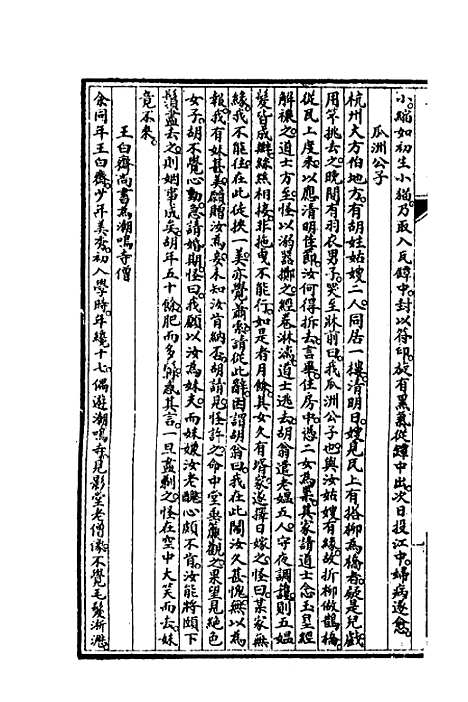 小貓如初生小貓乃取入瓦罈中封以符印旋有黑氣從罈中出次日投江中婦病遂愈
瓜洲公子
杭州大方伯地方有胡姓姑嫂二人同居一樓清明日嫂見瓦上有搭柳為橋者疑是兒戲
用竿挑去之晚間有羽衣男子哭至牀前曰我瓜洲公子也與汝姑嫂有緣故折柳做鵲橋
從瓦上度來以應清明佳節汝何得拆去言畢住房中憑二女為祟其家請道士念玉皇經
解禳之道士方至怪以溺器擲之經卷淋漓道士逃去胡翁遣老媼五人守夜調護則五媼
髮皆成辮絲絲相接非拖曳不能行如是者月餘其女久有壻家遂擇日嫁之怪曰某家無
緣我不能往在此從挾一美亦覺蕭索請從此辭因謂胡翁曰我在此鬧汝久甚愧無以為
報我有妹甚美願贈汝為妾未知汝肯納否胡請見怪許之命中堂垂簾觀之果望見絕色
女子胡不覺心動急請婚期怪曰我願以汝為妹夫而妹嫌汝老醜心頗不肯汝能將頤下
鬚盡去之則姻事成矣胡年五十餘肥而多鬚惑其言一旦盡剃之怪在空中大笑而去妹
竟不來
王白齋尚書為潮鳴寺僧
余同年王白齋少年美秀初入學時年纔十七偶遊潮鳴寺見影堂老僧像不覺毛髮淅灑